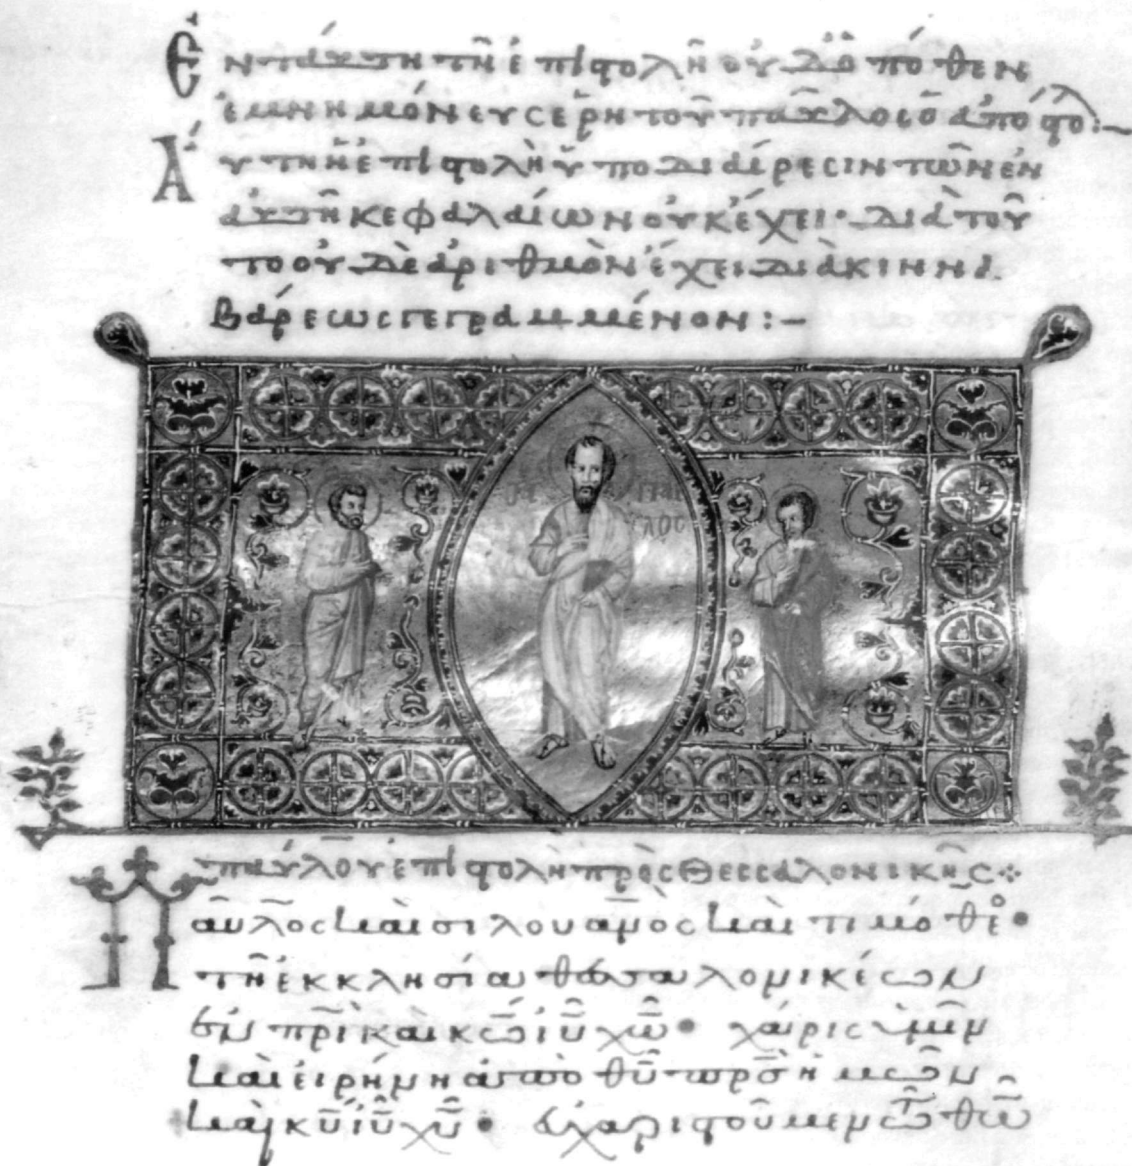 Ἐν ταύτῃ τῇ ἐπιστολῇ οὐδόποθεν
ἐμνημόνευσε ῥητοῦ παῦλος ὁ ἀπόστο:–
Αὕτη ἡ ἐπιστολὴ ὑποδιαίρεσιν τῶν ἐν
αὐτῇ κεφαλαίων οὐκ ἔχει· διὰ τοῦ
το οὐδὲ ἀριθμὸν ἔχει διὰ κιννα
βάρεως γεγραμμένον:–
ΠΑΥ
ΛΟΣ
παύλου ἐπιστολὴ πρὸς Θεσσαλονικῆς
Παῦλος καὶ σιλουανὸς καὶ τιμόθε
τῇ ἐκκλησία θεσσαλονικέων
ἐν πρὶ καὶ κω ιυ χω· χάρις ὑμῖν
καὶ εἰρήνη ἀπὸ θυ πρσ ἡμῶν
καὶ κυ ιυ χυ· εὐχαριστοῦμεν τῶ θω